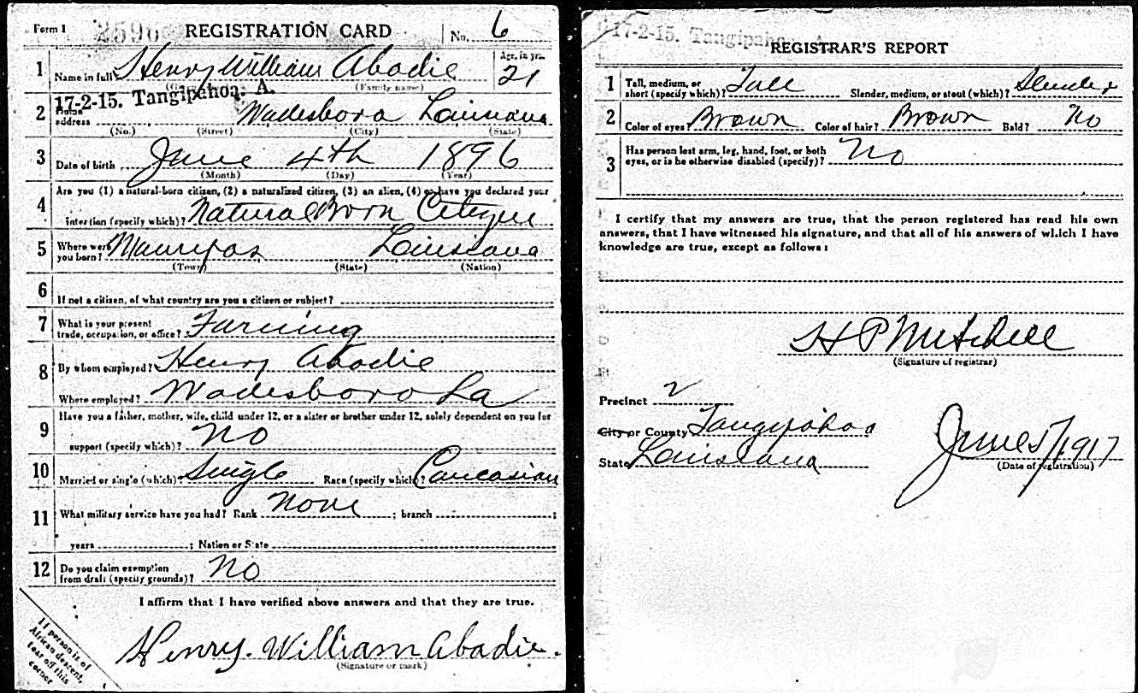 Form 1 2596 REGISTRATION CARD No. 6
1 Name in full Henry William Abadie Age, in yrs. 21
(Family name)
17-2-15. Tangipahoa. A.
2 Home address Wadesboro Louisiana
(No.) (Street) (City) (State)
3 Date of birth June 4th 1896
(Month) (Day) (Year)
Are you (1) a natural-born citizen, (2) a naturalized citizen, (3) an alien, (4) or have you declared your
4 intention (specify which)? Natural Born Citizen
5 Where were you born? Maurepas Louisiana
(Town) (State) (Nation)
6 If not a citizen, of what country are you a citizen or subject?
7 What is your present trade, occupation, or office? Farming
8 By whom employed? Henry Abadie
Where employed? Wadesboro La
9 Have you a father, mother, wife, child under 12, or a sister or brother under 12, solely dependent on you for
support (specify which)? No
10 Married or single (which)? Single Race (specify which)? Caucasian
11 What military service have you had? Rank None ; branch ;
years ; Nation or State
12 Do you claim exemption from draft (specify grounds)? No
I affirm that I have verified above answers and that they are true.
Henry. William Abadie.
(Signature or mark)
If person is of
African descent,
tear off this
corner
17-2-15. Tangipahoa. A
REGISTRAR'S REPORT
1 Tall, medium, or short (specify which)? Tall Slender, medium, or stout (which)? Slender
2 Color of eyes? Brown Color of hair? Brown Bald? No
3 Has person lost arm, leg, hand, foot, or both
eyes, or is he otherwise disabled (specify)? No
I certify that my answers are true, that the person registered has read his own
answers, that I have witnessed his signature, and that all of his answers of which I have
knowledge are true, except as follows:
H P Mitchell
(Signature of registrar)
Precinct 2
City or County Tangipahoa
State Louisiana
June 5/1917
(Date of registration)